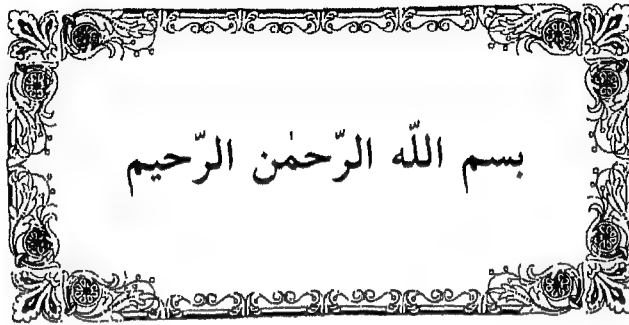 بسم اللّه الرّحمٰن الرّحيم